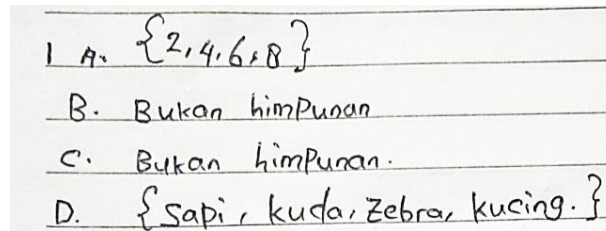 1 A. {2,4,6,8}
B. Bukan himpunan
C. Bukan himpunan.
D. {sapi, kuda, zebra, kucing.}